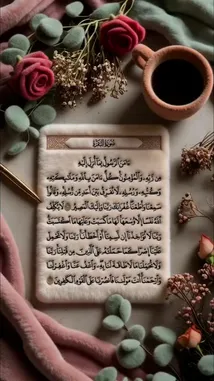 سُورَةُ البَقَرَة
ءَامَنَ الرَّسُولُ بِمَا أُنزِلَ إِلَيْهِ
مِن رَّبِّهِ وَالْمُؤْمِنُونَ كُلٌّ ءَامَنَ بِاللَّهِ وَمَلَٰئِكَتِهِ
وَكُتُبِهِ وَرُسُلِهِ لَا نُفَرِّقُ بَيْنَ أَحَدٍ مِّن رُّسُلِهِ وَقَالُوا
سَمِعْنَا وَأَطَعْنَا غُفْرَانَكَ رَبَّنَا وَإِلَيْكَ الْمَصِيرُ لَا يُكَلِّفُ
اللَّهُ نَفْسًا إِلَّا وُسْعَهَا لَهَا مَا كَسَبَتْ وَعَلَيْهَا مَا اكْتَسَبَتْ
رَبَّنَا لَا تُؤَاخِذْنَا إِن نَّسِينَا أَوْ أَخْطَأْنَا رَبَّنَا وَلَا تَحْمِلْ
عَلَيْنَا إِصْرًا كَمَا حَمَلْتَهُ عَلَى الَّذِينَ مِن قَبْلِنَا رَبَّنَا
وَلَا تُحَمِّلْنَا مَا لَا طَاقَةَ لَنَا بِهِ وَاعْفُ عَنَّا وَاغْفِرْ لَنَا
وَارْحَمْنَا أَنتَ مَوْلَىٰنَا فَانصُرْنَا عَلَى الْقَوْمِ الْكَٰفِرِينَ